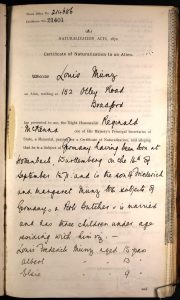 Home Office No. 211,986
Certificate No. 21401
NATURALIZATION ACTS, 1870
Certificate of Naturalization to an Alien.
WHEREAS Louis Münz
an Alien, residing at 152 Otley Road
Bradford
has presented to me, the Right Honourable Reginald
McKenna one of His Majesty's Principal Secretaries
of State, a Memorial, praying for a Certificate of Naturalization, and alleging
that he is a Subject of Germany having been born at
Württemberg on the
September 187 and is the son of Frederick
and Margaret Münz the subjects of
Germany, a Pork Butcher is married
and has three children under age
residing with him viz:
Louis Frederick Münz aged 15 years
Albert 13
Elsie 9
and